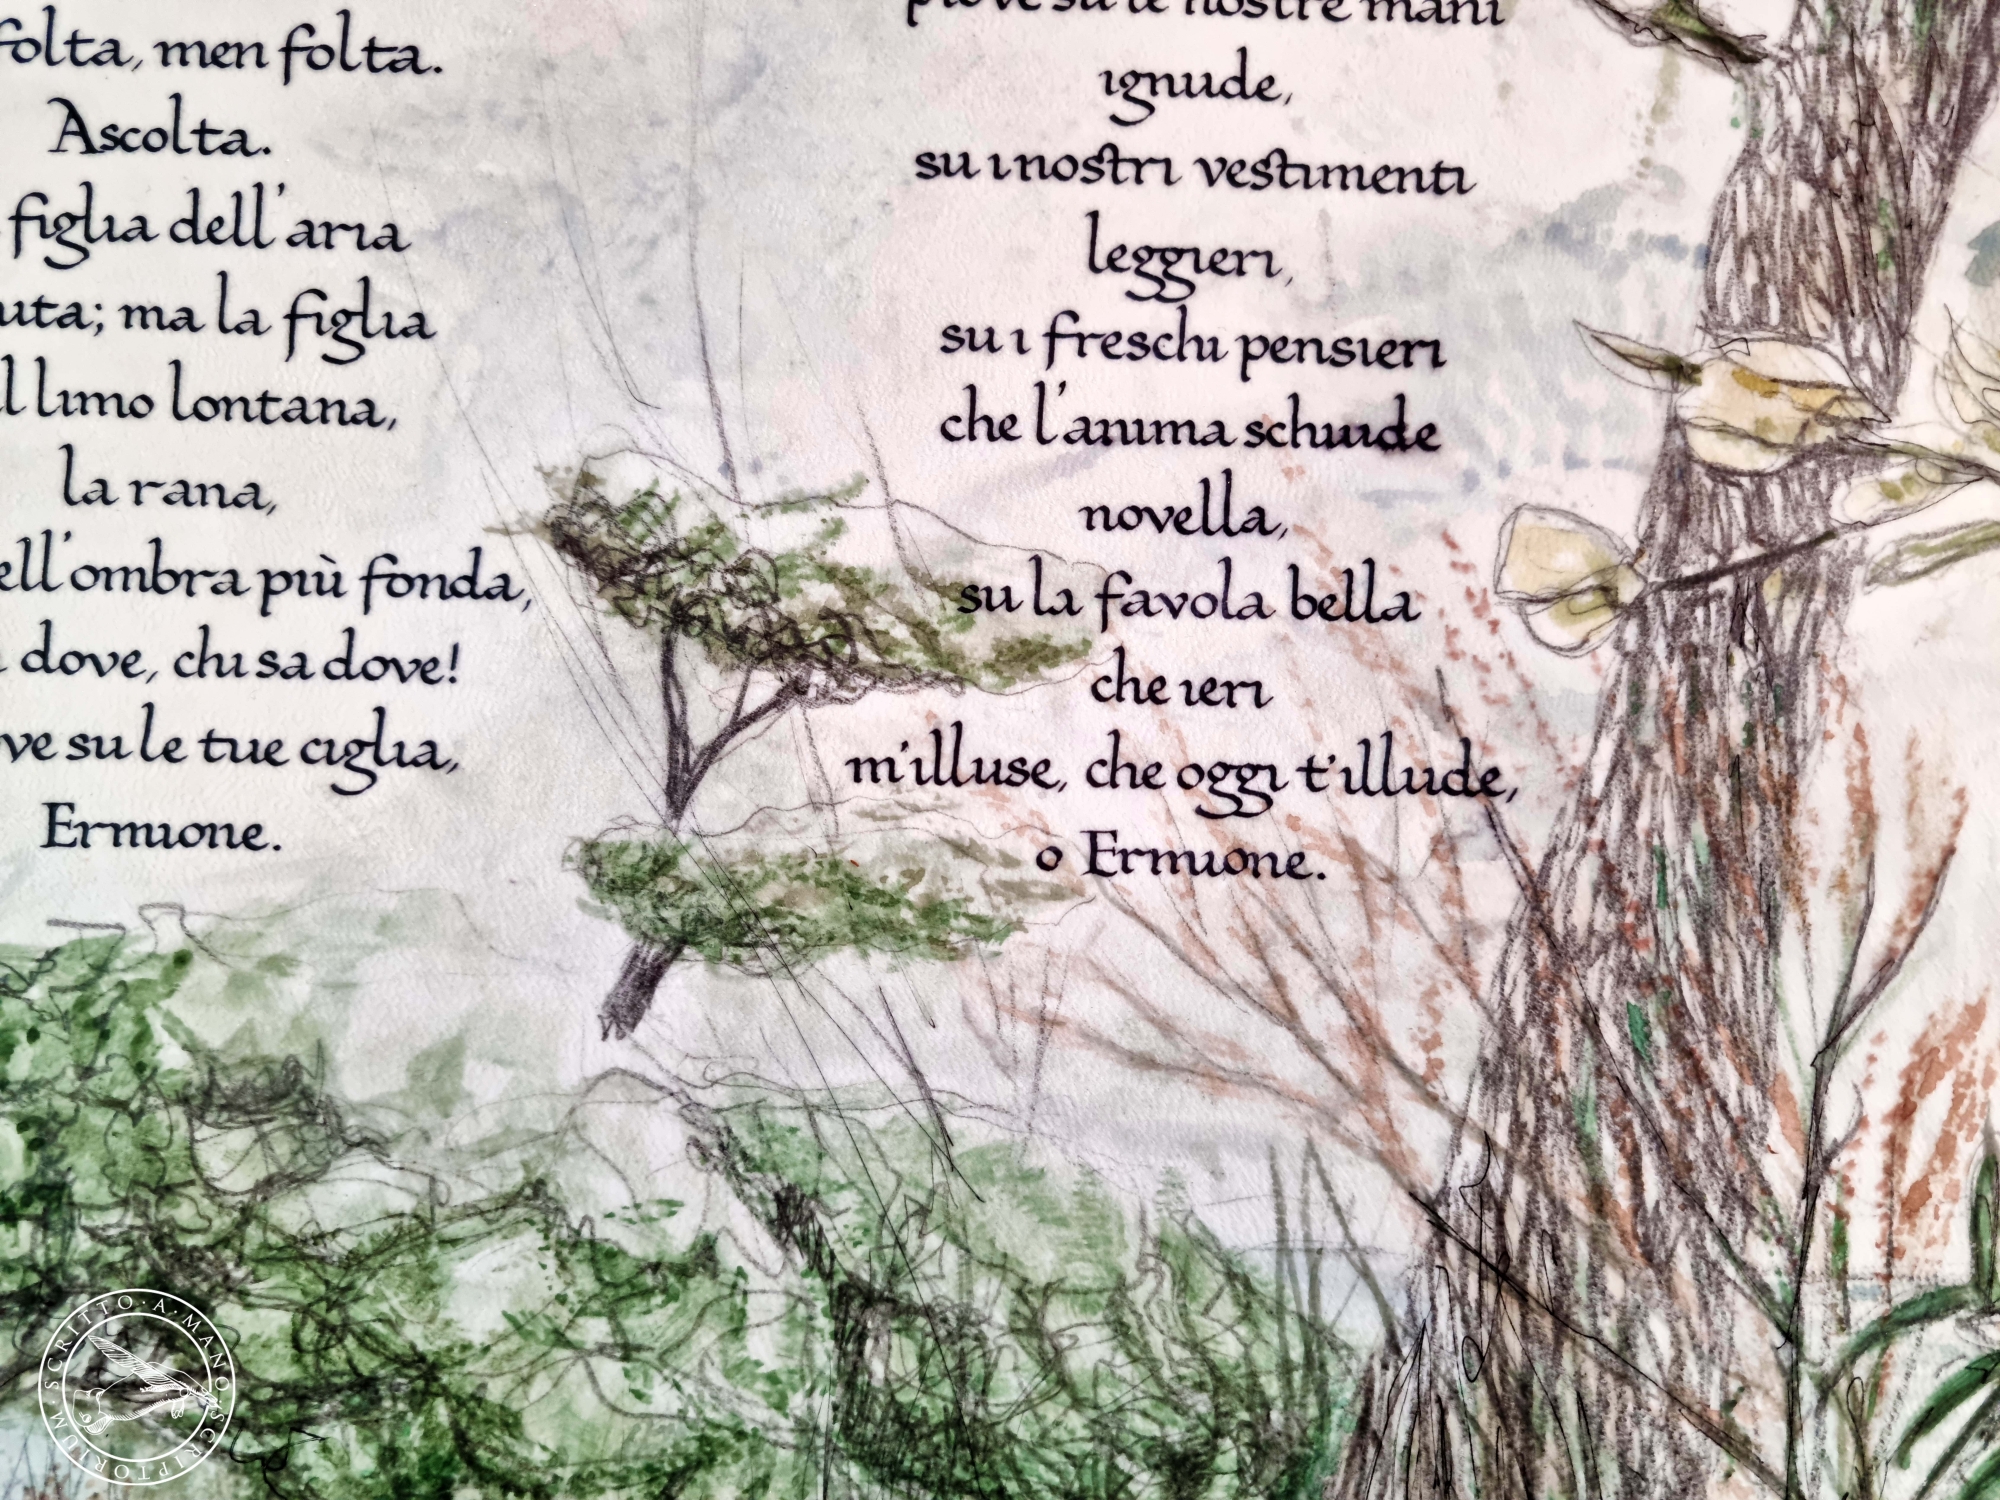 folta, men folta.
Ascolta.
figlia dell'aria
uta; ma la figlia
l limo lontana,
la rana,
ell'ombra più fonda,
dove, chi sa dove!
ve su le tue ciglia,
Ermione.
piove su le nostre mani
ignude,
su i nostri vestimenti
leggieri,
su i freschi pensieri
che l'anima schiude
novella,
su la favola bella
che ieri
m'illuse, che oggi t'illude,
o Ermione.
SCRITTO · A · MANO · SCRIPTORIUM ·